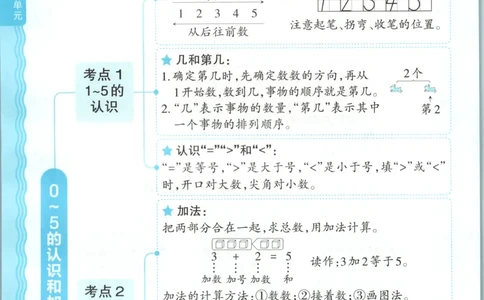 单元
1 2 3 4 5
1 2 3 4 5
从后往前数
注意起笔、拐弯、收笔的位置。
考点 1
1~5的
认识
★ 几和第几：
1.确定第几时，先确定数数的方向，再从
1开始数，数到几，事物的顺序就是第几。
2.“几”表示事物的数量，“第几”表示其中
一个事物的排列顺序。
2个
第2
★ 认识“=”“>”和“<”：
“=”是等号，“>”是大于号，“<”是小于号，填“>”或“<”
时，开口对大数，尖角对小数。
0~5的认识和加
★ 加法：
把两部分合在一起，求总数，用加法计算。
3 + 2 = 5
读作：3加2等于5。
加数 加号 加数 和
考点 2
加法的计算方法：①数数；②接着数；③画图法。